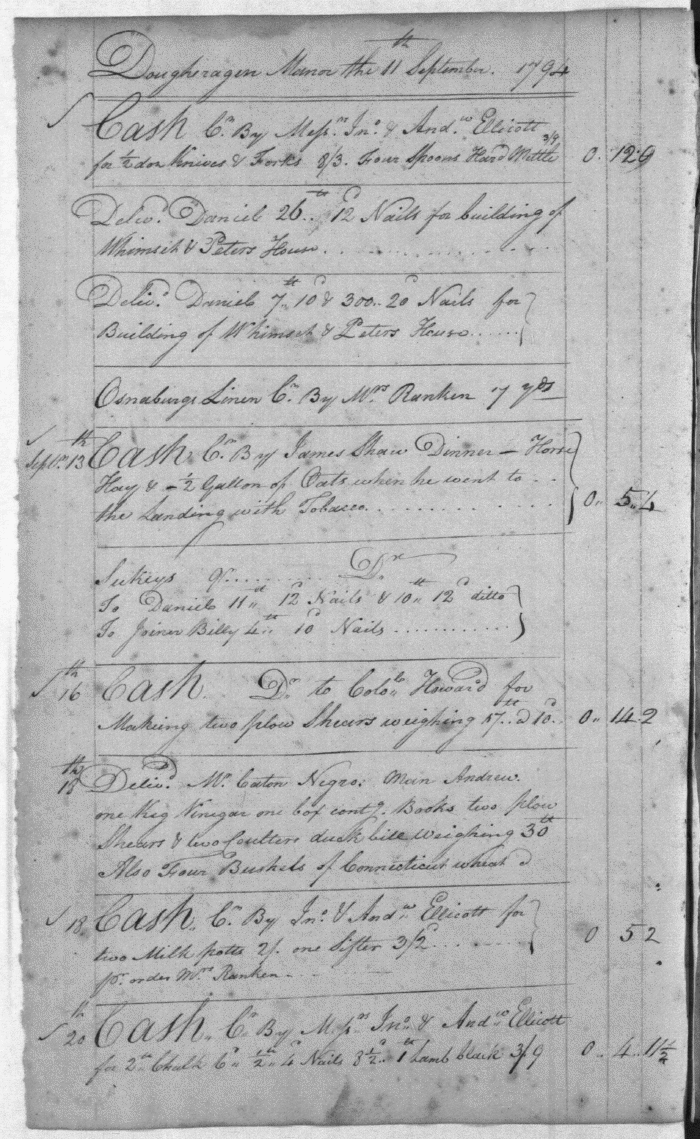 Dougheragen Manor the 11th September. 1794
Cash Cr. By Messrs. Jno. & Andw. Ellicott
for ½ doz Knives & Forks 8/3. Four Spoons Hard Mettle 3/9 0. 12.0
Delivd. Daniel 26th 12d Nails for building of
Whimsit & Peters House
Delivd. Daniel 7th 10d & 300.. 20d Nails for
Building of Whimset & Peters House
Osnaburgs Linen Cr. By Mrs. Ranken 17 yds
Septbr. 13th Cash Cr. By James Shaw Dinner — Horse
Hay & ½ Gallon of Oats when he went to
the Landing with Tobacco 0.. 5..4
Sukeys Qr. Dr
To Daniel 11th 12d Nails & 10th 12d ditto
To Joiner Billy 4th 10d Nails
16th Cash Dr. to Colo. Howard for
Making two plow Shears weighing 17th @ 10d 0.. 14.2
18th Delivd. Mr. Caton Negro: Man Andrew
one Keg Vinegar one box contg. Books two plow
Shears & two Coulters duck bill weighing 30th
Also Four Bushels of Connecticut wheat
18 Cash Cr. By Jno. & Andw. Ellicott for
two Milk potts 2/. one Sifter 3/2 0 5 2
pr. order Mrs. Ranken
20th Cash Cr. By Messrs. Jno. & Andw. Ellicott
for 2th Chalk 6d ½th 4d Nails 3½d 1th Lamb black 3/9 0.. 4.. 11½